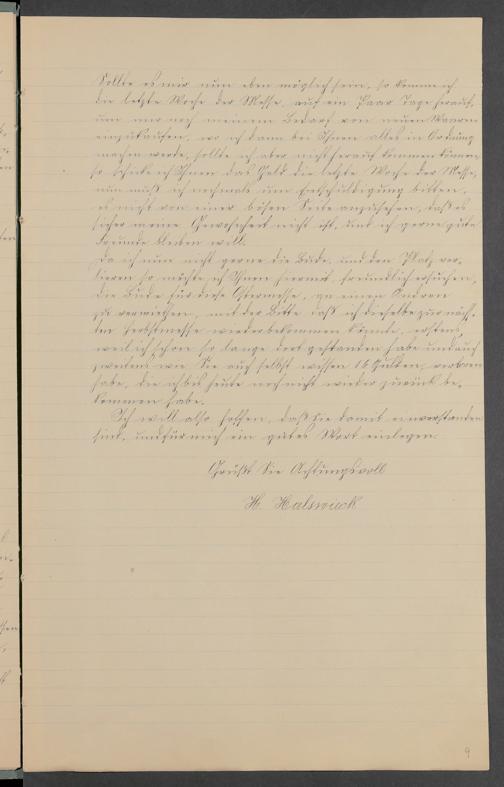 Sollte es mir nun eben möglich sein, so komme ich
die letzte Woche der Messe, auf ein Paar Tage herauf,
um mir noch meinem Bedarf von neuen Waaren
einzukaufen, wo ich dann bei Ihnen alles in Ordnung
machen werde, sollte ich aber nicht herauf kommen können
so schicke ich Ihnen das Geld die letzte Woche der Messe,
nun muß ich nochmals um Entschuldigung bitten,
es nicht von einer bösen Seite anzusehen, daß es
sicher meine Gewohnheit nicht ist, und ich gerne gute
Freunde bleiben will.
Da ich nun nicht gerne die Bude, und den Platz ver-
lieren so möchte ich Ihnen hiermit, freundlich ersuchen,
die Bude für diese Ostermesse, an einen Andren
zu vermiethen, mit der Bitte daß ich dieselbe zur näch-
ten Herbstmesse wiederbekommen könnte, erstens,
weil ich schon so lange dort gestanden habe und auch
zweitens wie Sie auch selbst wissen 16 Gulden, verloren
habe, die ich bis heute noch nicht wieder zurück be-
kommen habe.
Ich will also hoffen, daß Sie damit einverstanden
sind, und für mich ein gutes Wort einlegen.
Grüßt Sie Achtungsvoll
H. Halswick
9